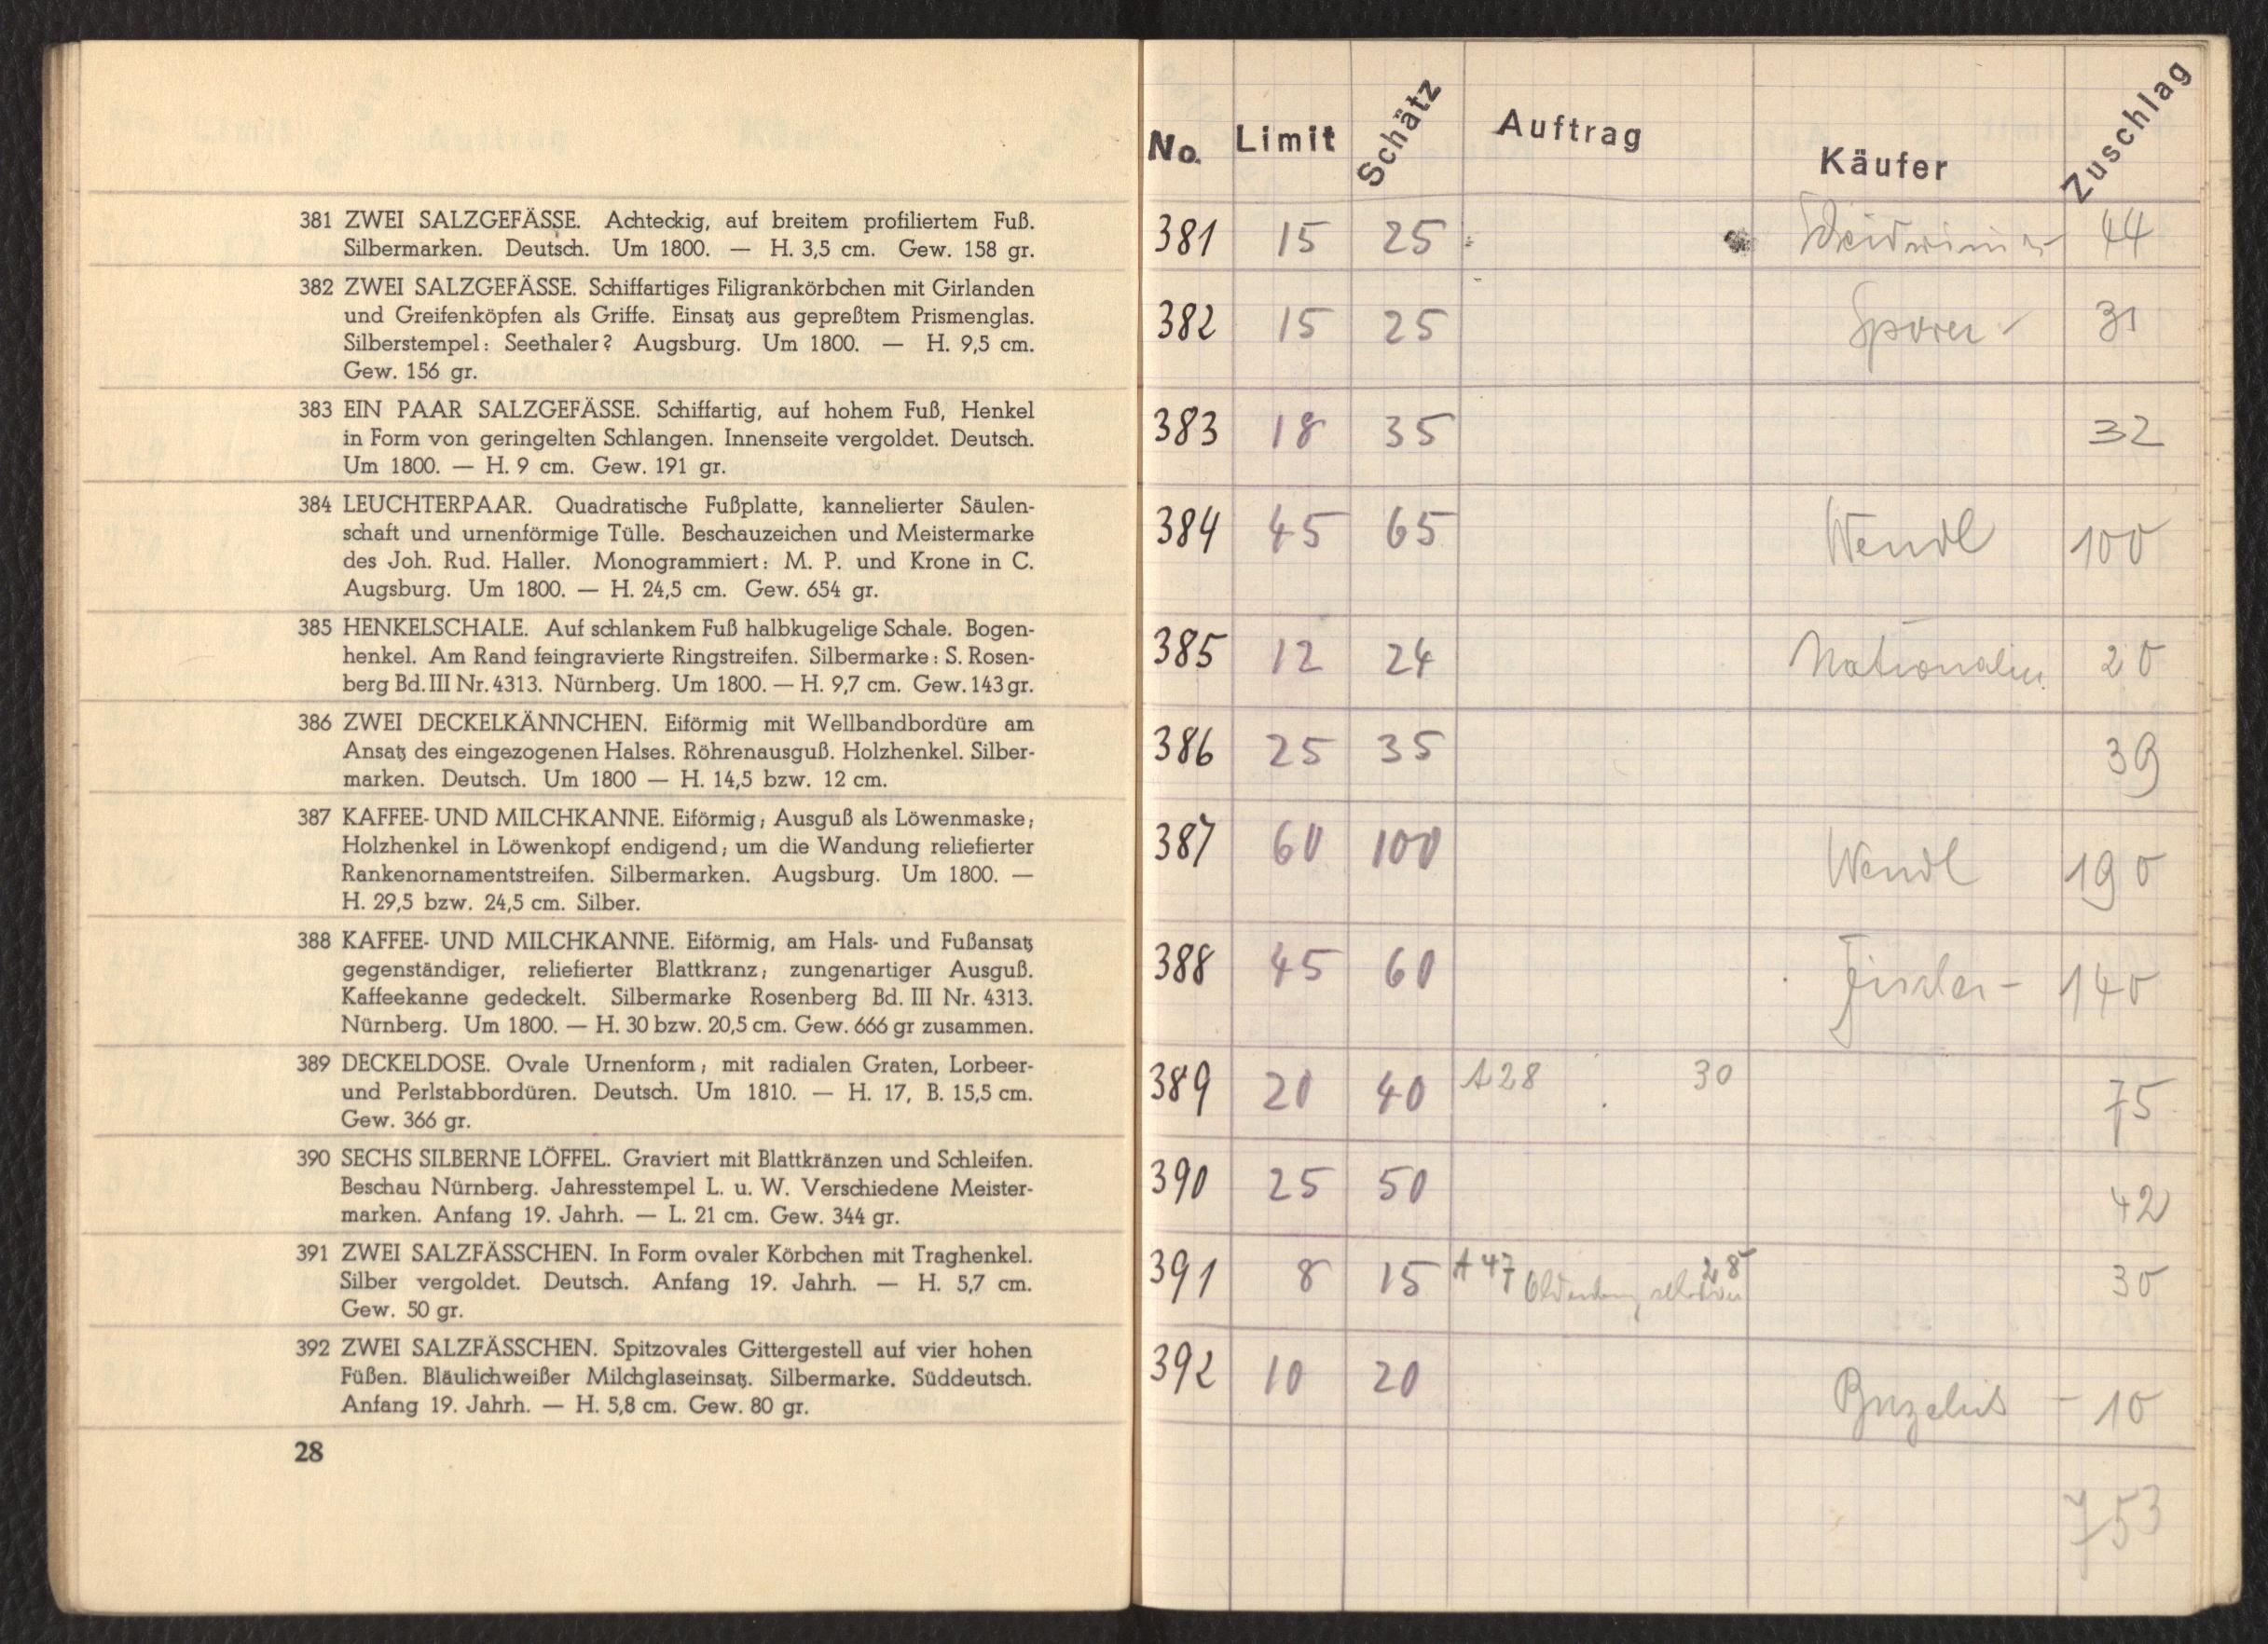 381 ZWEI SALZGEFÄSSE. Achteckig, auf breitem profiliertem Fuß.
Silbermarken. Deutsch. Um 1800. — H. 3,5 cm. Gew. 158 gr.
382 ZWEI SALZGEFÄSSE. Schiffartiges Filigrankörbchen mit Girlanden
und Greifenköpfen als Griffe. Einsatz aus gepreßtem Prismenglas.
Silberstempel: Seethaler? Augsburg. Um 1800. — H. 9,5 cm.
Gew. 156 gr.
383 EIN PAAR SALZGEFÄSSE. Schiffartig, auf hohem Fuß, Henkel
in Form von geringelten Schlangen. Innenseite vergoldet. Deutsch.
Um 1800. — H. 9 cm. Gew. 191 gr.
384 LEUCHTERPAAR. Quadratische Fußplatte, kannelierter Säulen-
schaft und urnenförmige Tülle. Beschauzeichen und Meistermarke
des Joh. Rud. Haller. Monogrammiert: M. P. und Krone in C.
Augsburg. Um 1800. — H. 24,5 cm. Gew. 654 gr.
385 HENKELSCHALE. Auf schlankem Fuß halbkugelige Schale. Bogen-
henkel. Am Rand feingravierte Ringstreifen. Silbermarke: S. Rosen-
berg Bd. III Nr. 4313. Nürnberg. Um 1800. — H. 9,7 cm. Gew. 143 gr.
386 ZWEI DECKELKÄNNCHEN. Eiförmig mit Wellbandbordüre am
Ansatz des eingezogenen Halses. Röhrenausguß. Holzhenkel. Silber-
marken. Deutsch. Um 1800 — H. 14,5 bzw. 12 cm.
387 KAFFEE- UND MILCHKANNE. Eiförmig; Ausguß als Löwenmaske;
Holzhenkel in Löwenkopf endigend; um die Wandung reliefierter
Rankenornamentstreifen. Silbermarken. Augsburg. Um 1800. —
H. 29,5 bzw. 24,5 cm. Silber.
388 KAFFEE- UND MILCHKANNE. Eiförmig, am Hals- und Fußansatz
gegenständiger, reliefierter Blattkranz; zungenartiger Ausguß.
Kaffeekanne gedeckelt. Silbermarke Rosenberg Bd. III Nr. 4313.
Nürnberg. Um 1800. — H. 30 bzw. 20,5 cm. Gew. 666 gr zusammen.
389 DECKELDOSE. Ovale Urnenform; mit radialen Graten, Lorbeer-
und Perlstabbordüren. Deutsch. Um 1810. — H. 17, B. 15,5 cm.
Gew. 366 gr.
390 SECHS SILBERNE LÖFFEL. Graviert mit Blattkränzen und Schleifen.
Beschau Nürnberg. Jahresstempel L. u. W. Verschiedene Meister-
marken. Anfang 19. Jahrh. — L. 21 cm. Gew. 344 gr.
391 ZWEI SALZFÄSSCHEN. In Form ovaler Körbchen mit Traghenkel.
Silber vergoldet. Deutsch. Anfang 19. Jahrh. — H. 5,7 cm.
Gew. 50 gr.
392 ZWEI SALZFÄSSCHEN. Spitzovales Gittergestell auf vier hohen
Füßen. Bläulichweißer Milchglaseinsatz. Silbermarke. Süddeutsch.
Anfang 19. Jahrh. — H. 5,8 cm. Gew. 80 gr.
28
No. Limit Schätz Auftrag Käufer Zuschlag
381 15 25 44
382 15 25 31
383 18 35 32
384 45 65 Wendl 100
385 12 24 20
386 25 35 39
387 60 100 Wendl 190
388 45 60 140
389 20 40 A28 30 75
390 25 50 42
391 8 15 A 47 28 30
392 10 20 — 10
753